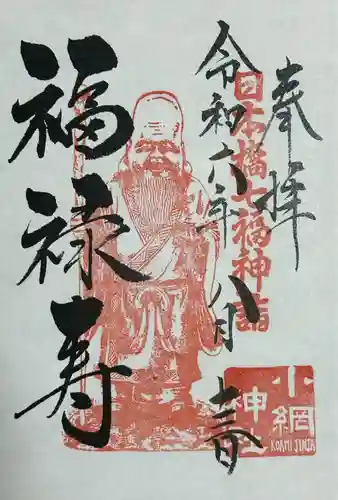 奉拝
日本橋七福神詣
令和六年八月十三日
福禄寿
小網神社
KOAMI JINJA